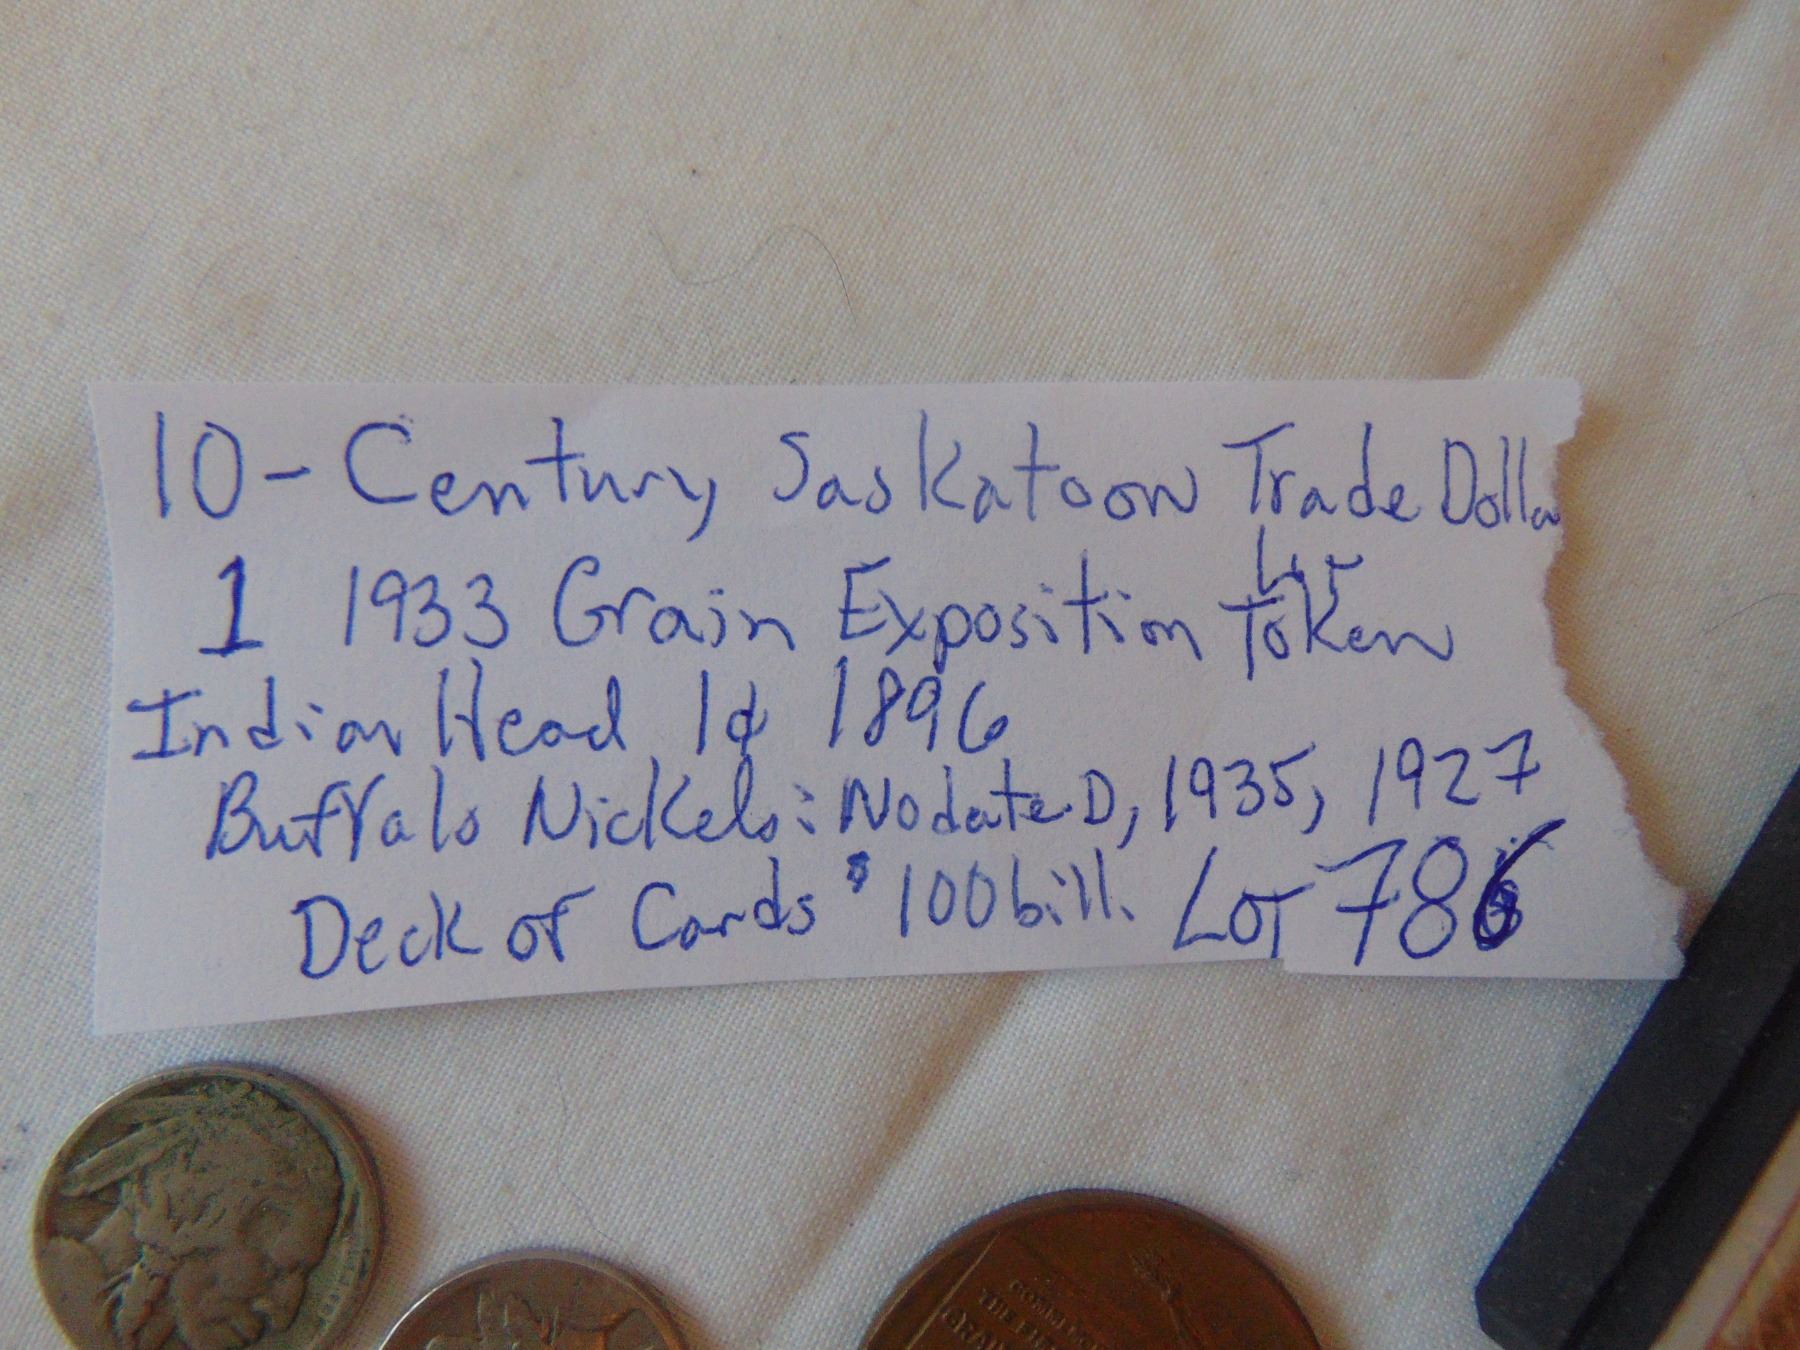 10 - Century Saskatoon Trade Dolla
1 1933 Grain Exposition Token
Indian Head 1¢ 1896
Buffalo Nickels: No date D, 1935, 1927
Deck of Cards $100 bill. Lot 786
COMM
THE FI
GRAI